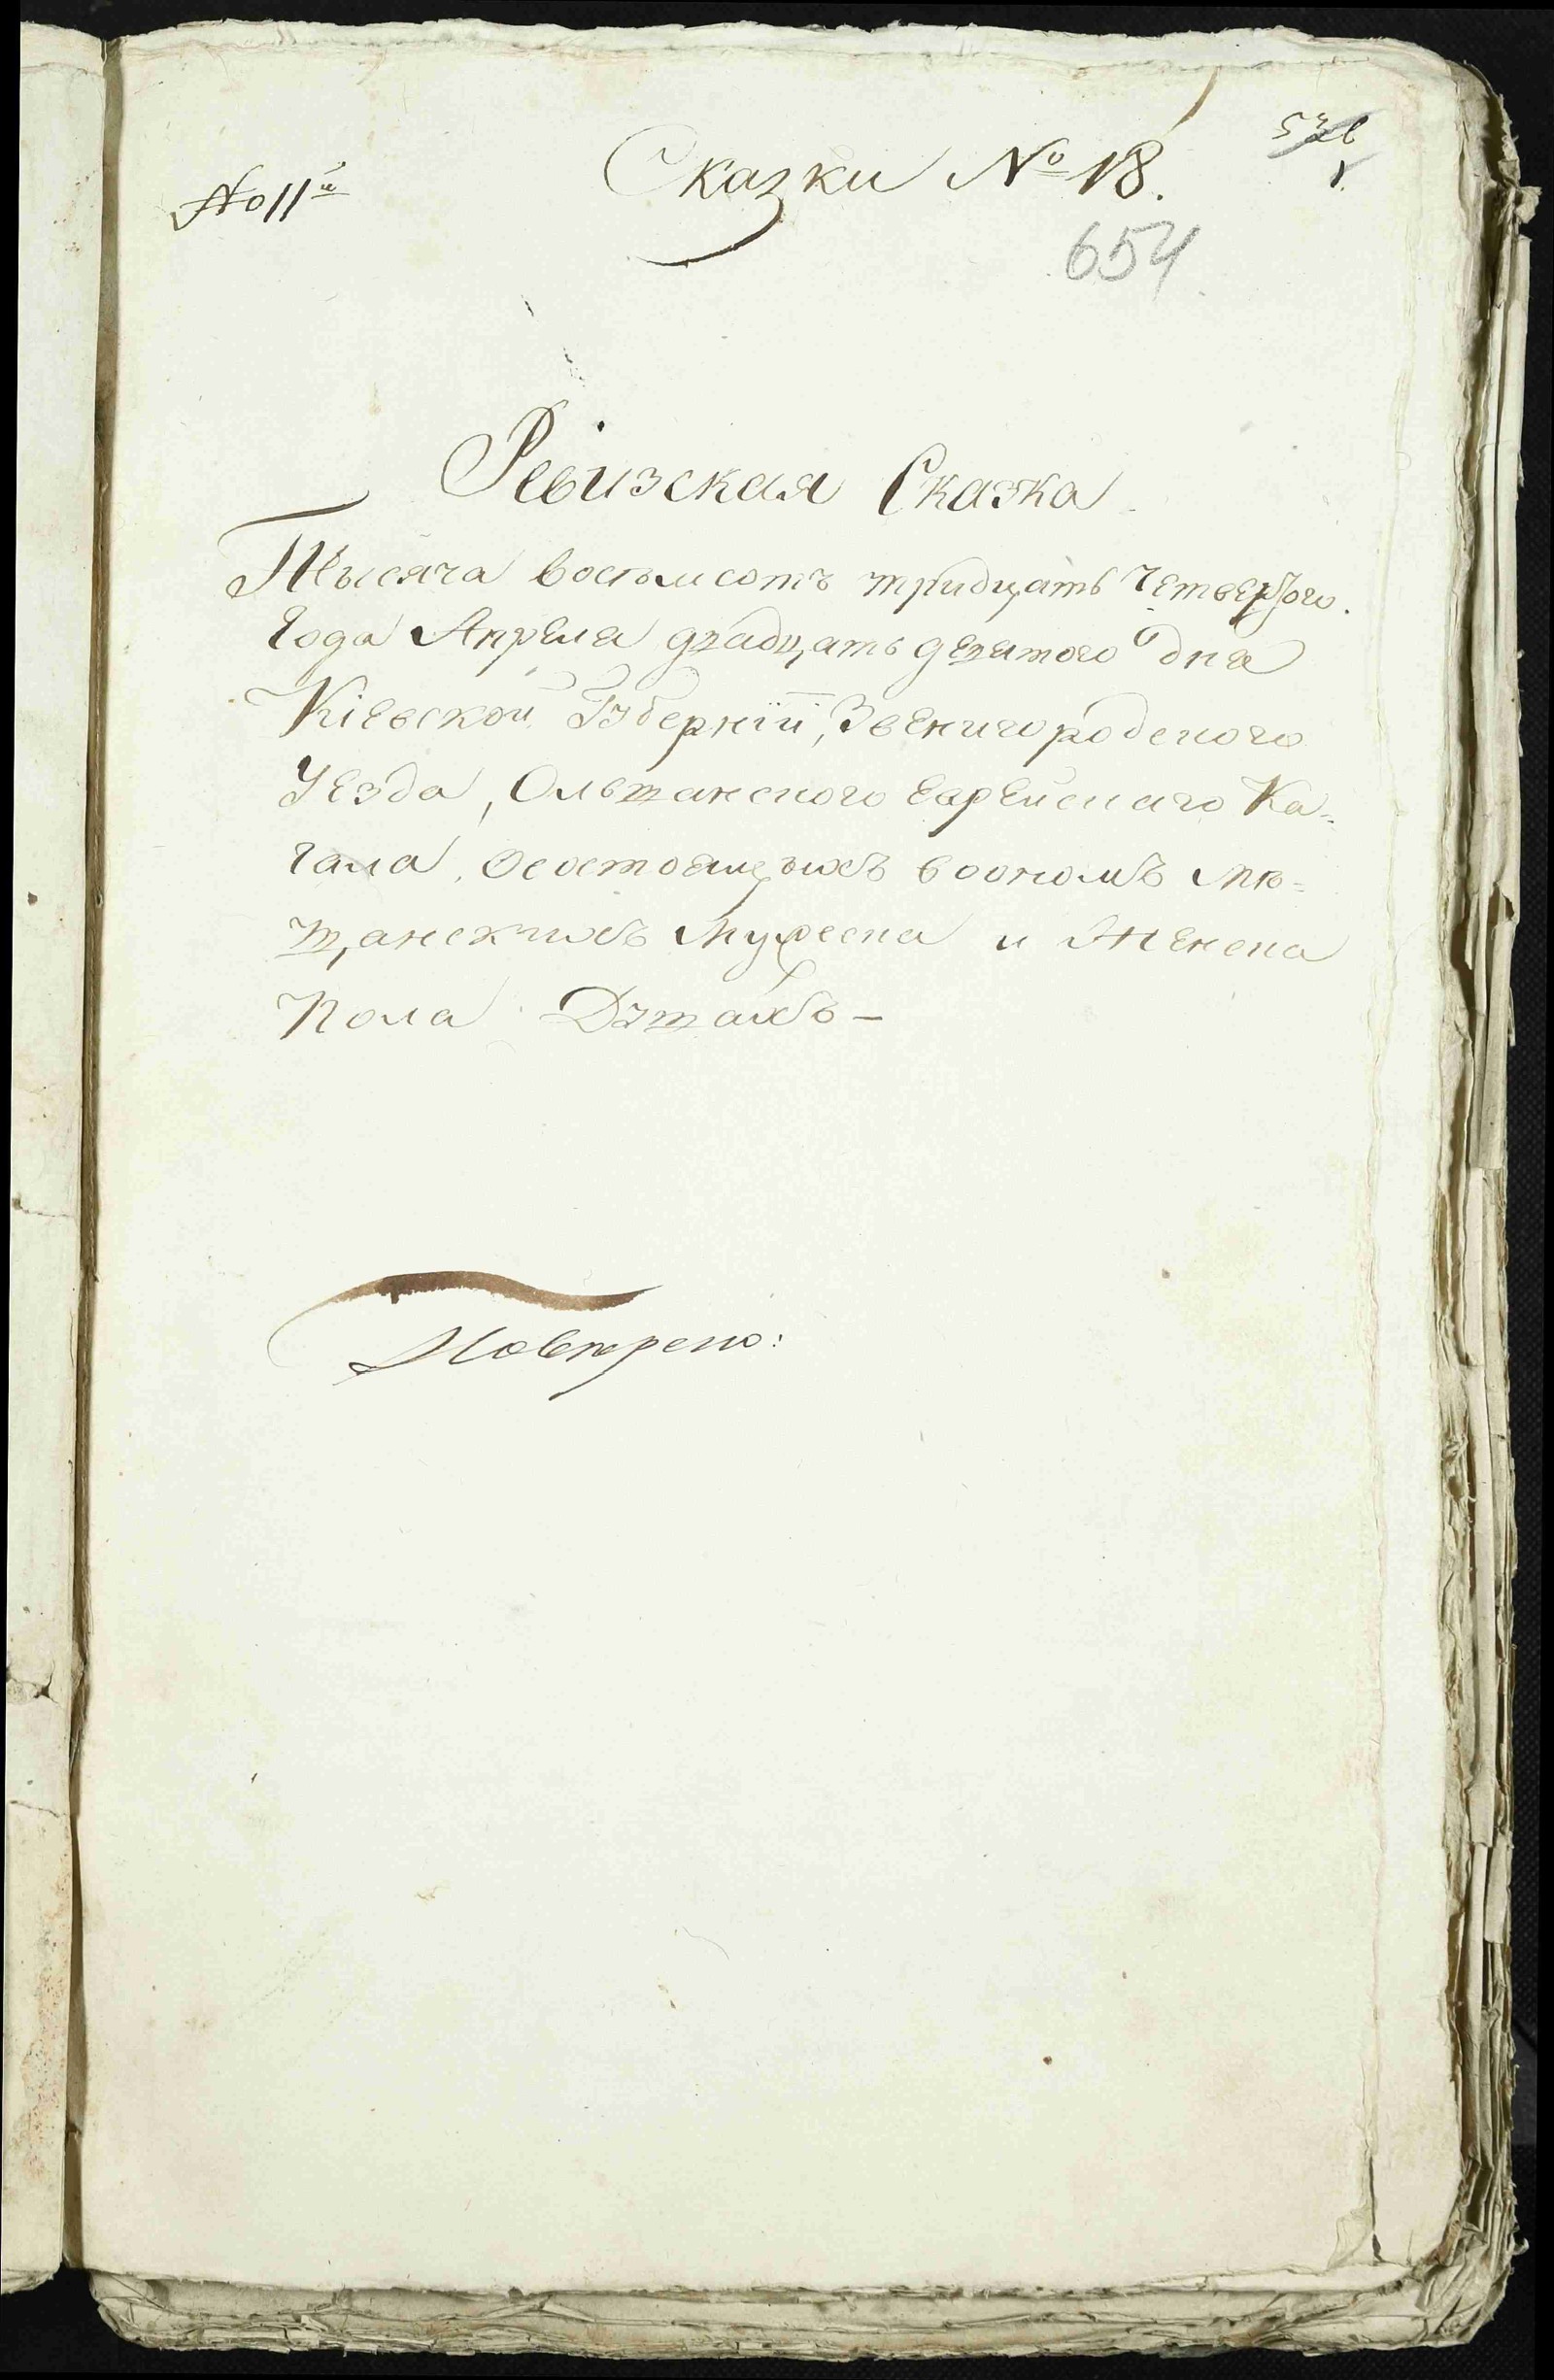 Сказки № 18.
№ 11й
1.
654
Ревизская Сказка
Тысяча восьмсотъ тридцать Четвертого
Года Апреля двадцать девятого дня
Кіевской Губерніи, Звенигородского
Уезда, Ольшанского Еврейскаго Ка=
гала, Осостоящихъ воономъ мѣ=
щанскихъ Мужеска и Женска
Пола Душахъ —
Поверено: